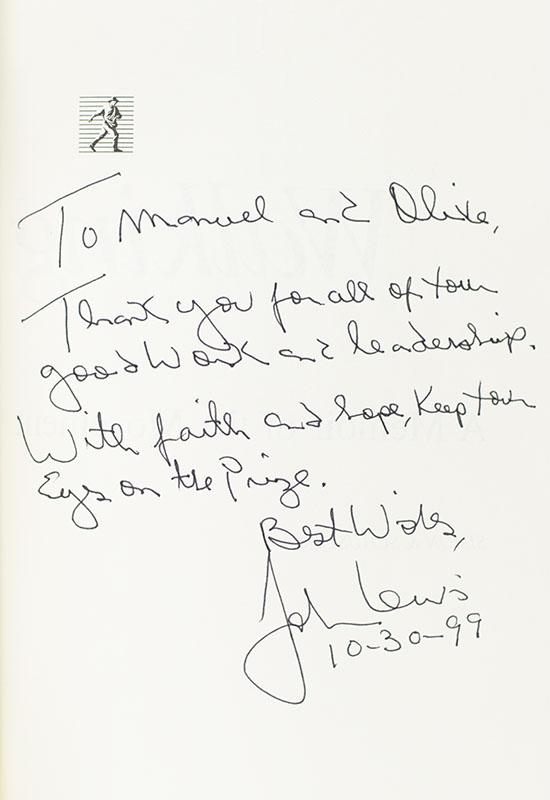 To Manuel and Olive,
Thank you for all of your
good work and leadership.
With faith and hope, Keep your
Eyes on the Prize.
Best Wishes,
John Lewis
10-30-99